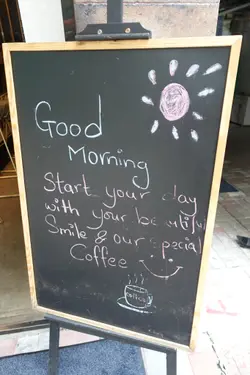 Good
Morning
Start your day
with your beautiful
Smile & our special
Coffee